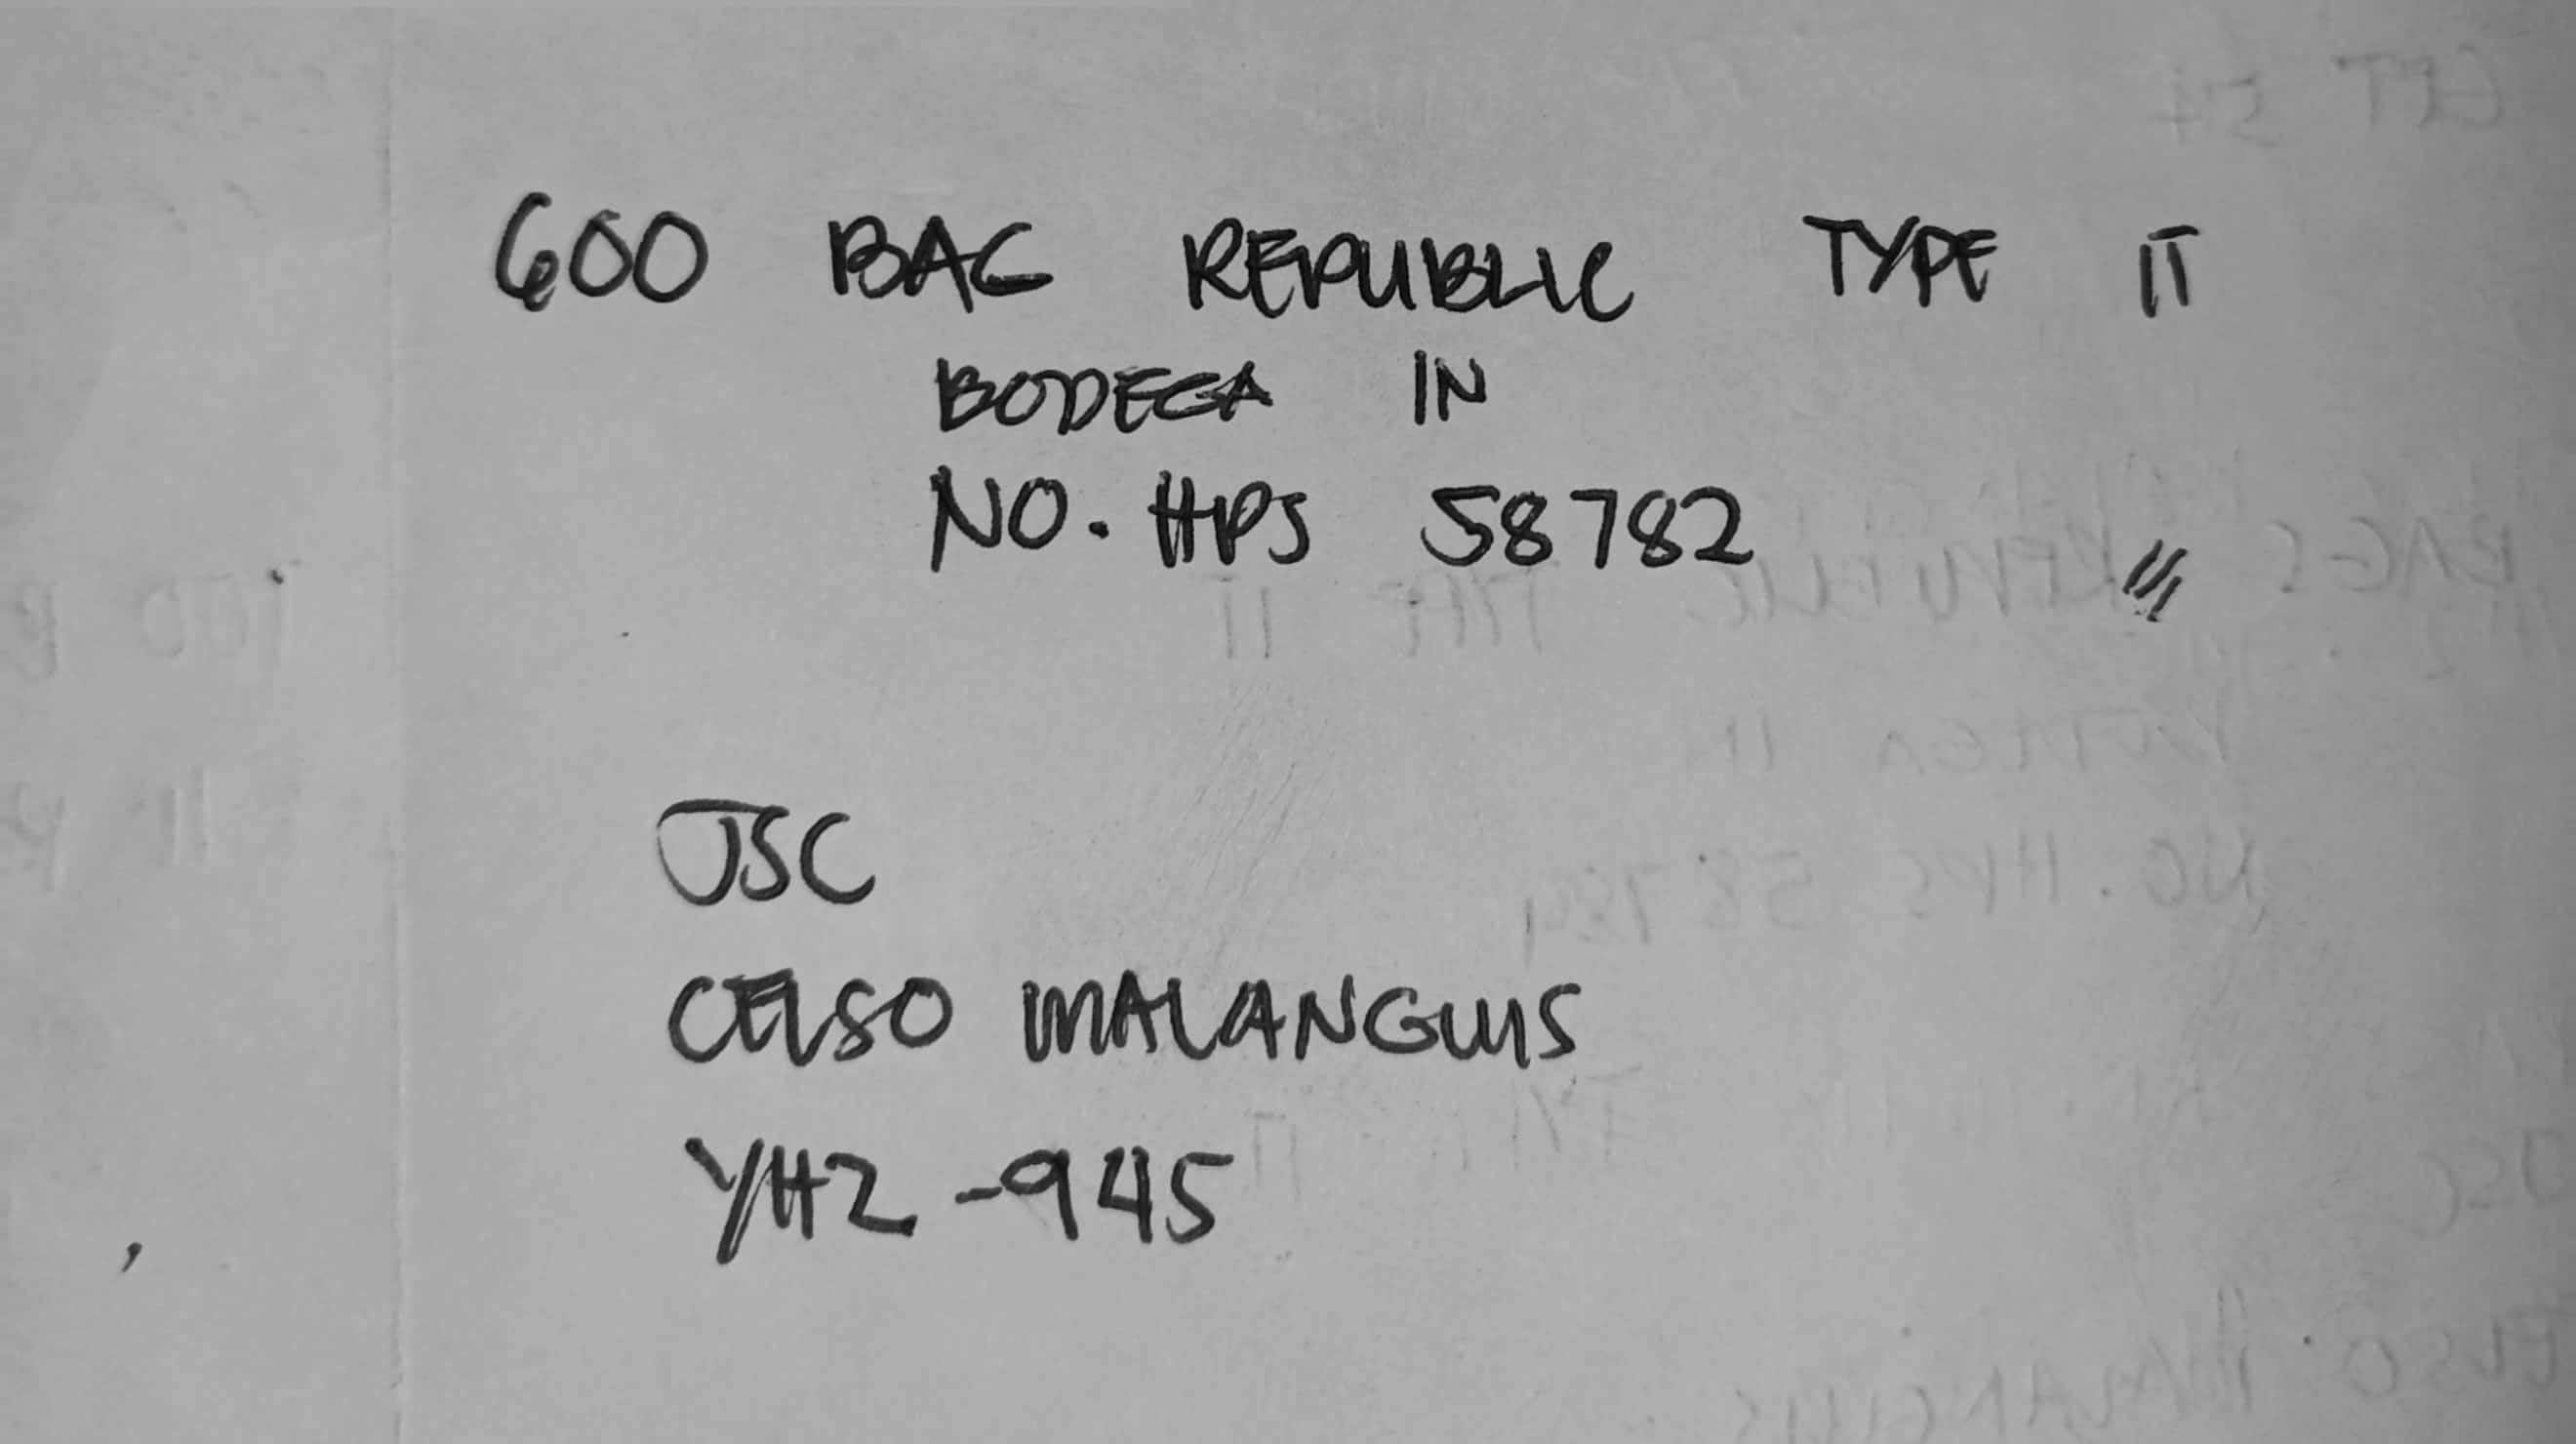 600 BAG REPUBLIC TYPE II
BODEGA IN
NO. HPS 58782
JSC
CELSO MALANGUIS
YHZ-945